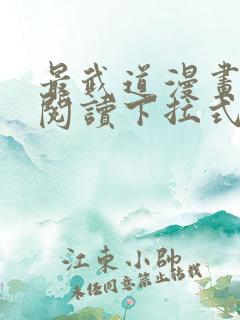 最武道漫畫
閱讀下拉式
江東小帥
未经同意禁止转载